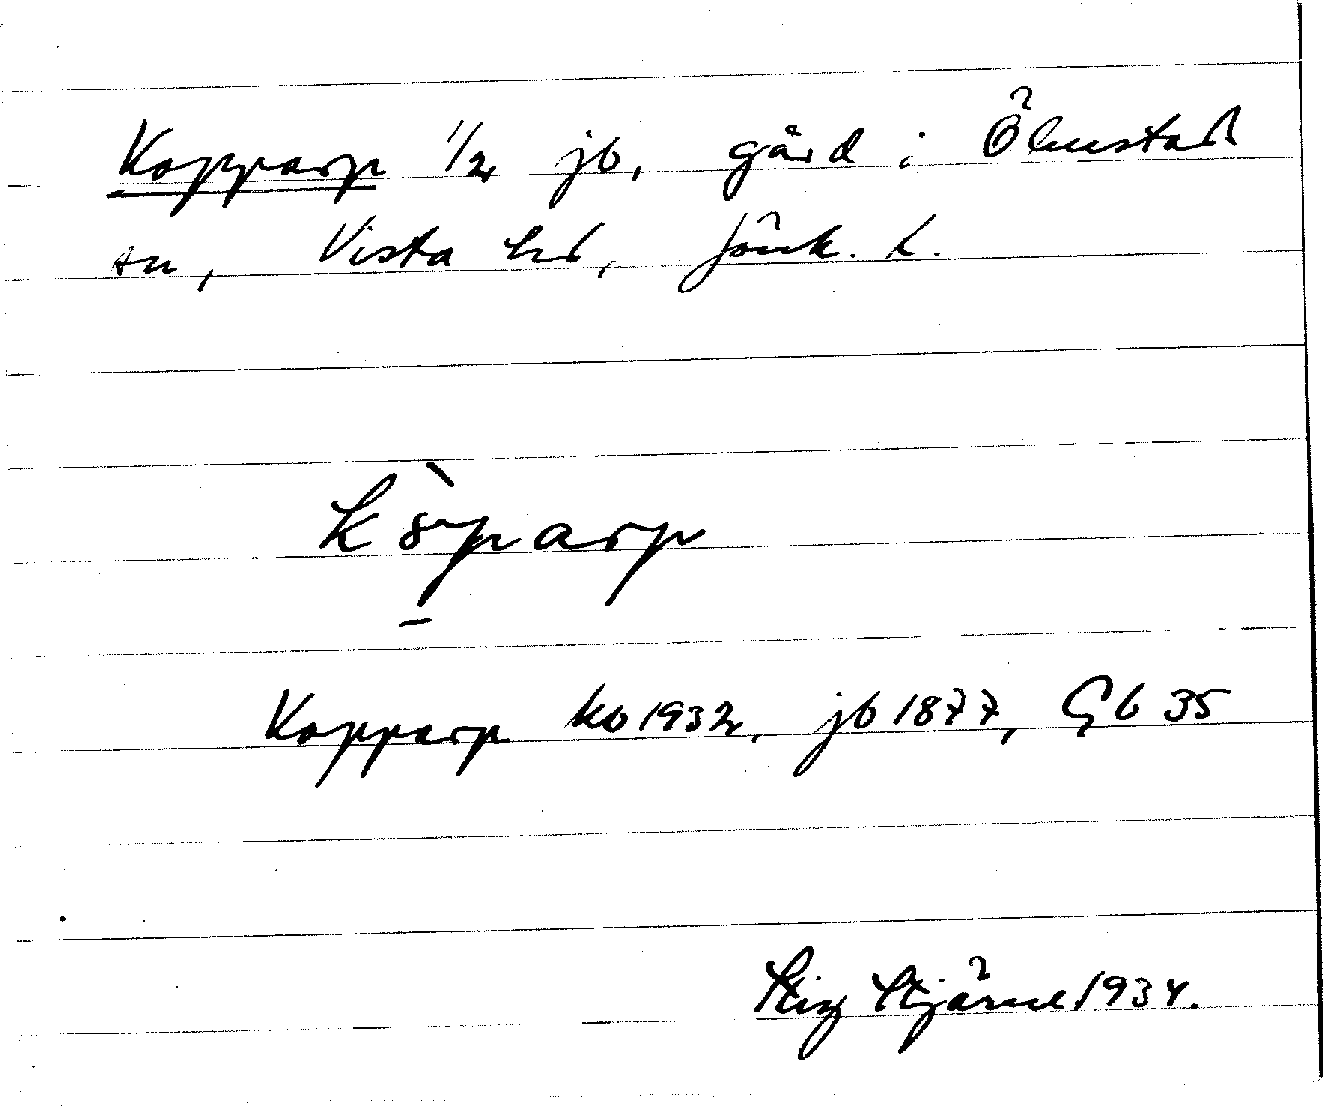 Kopparp 1/2 jb, gård i Ölmstad
sn, Vista hd, Jönk. l.
köparp
Kopparp kb 1932, jb 1877, Gb 35
Stig Stjärne 1934.